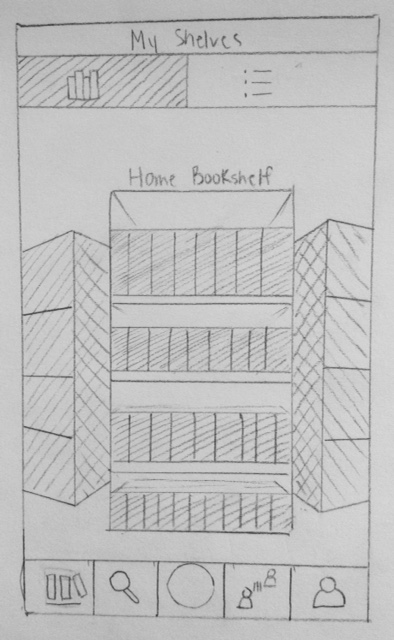 My Shelves
Home Bookshelf